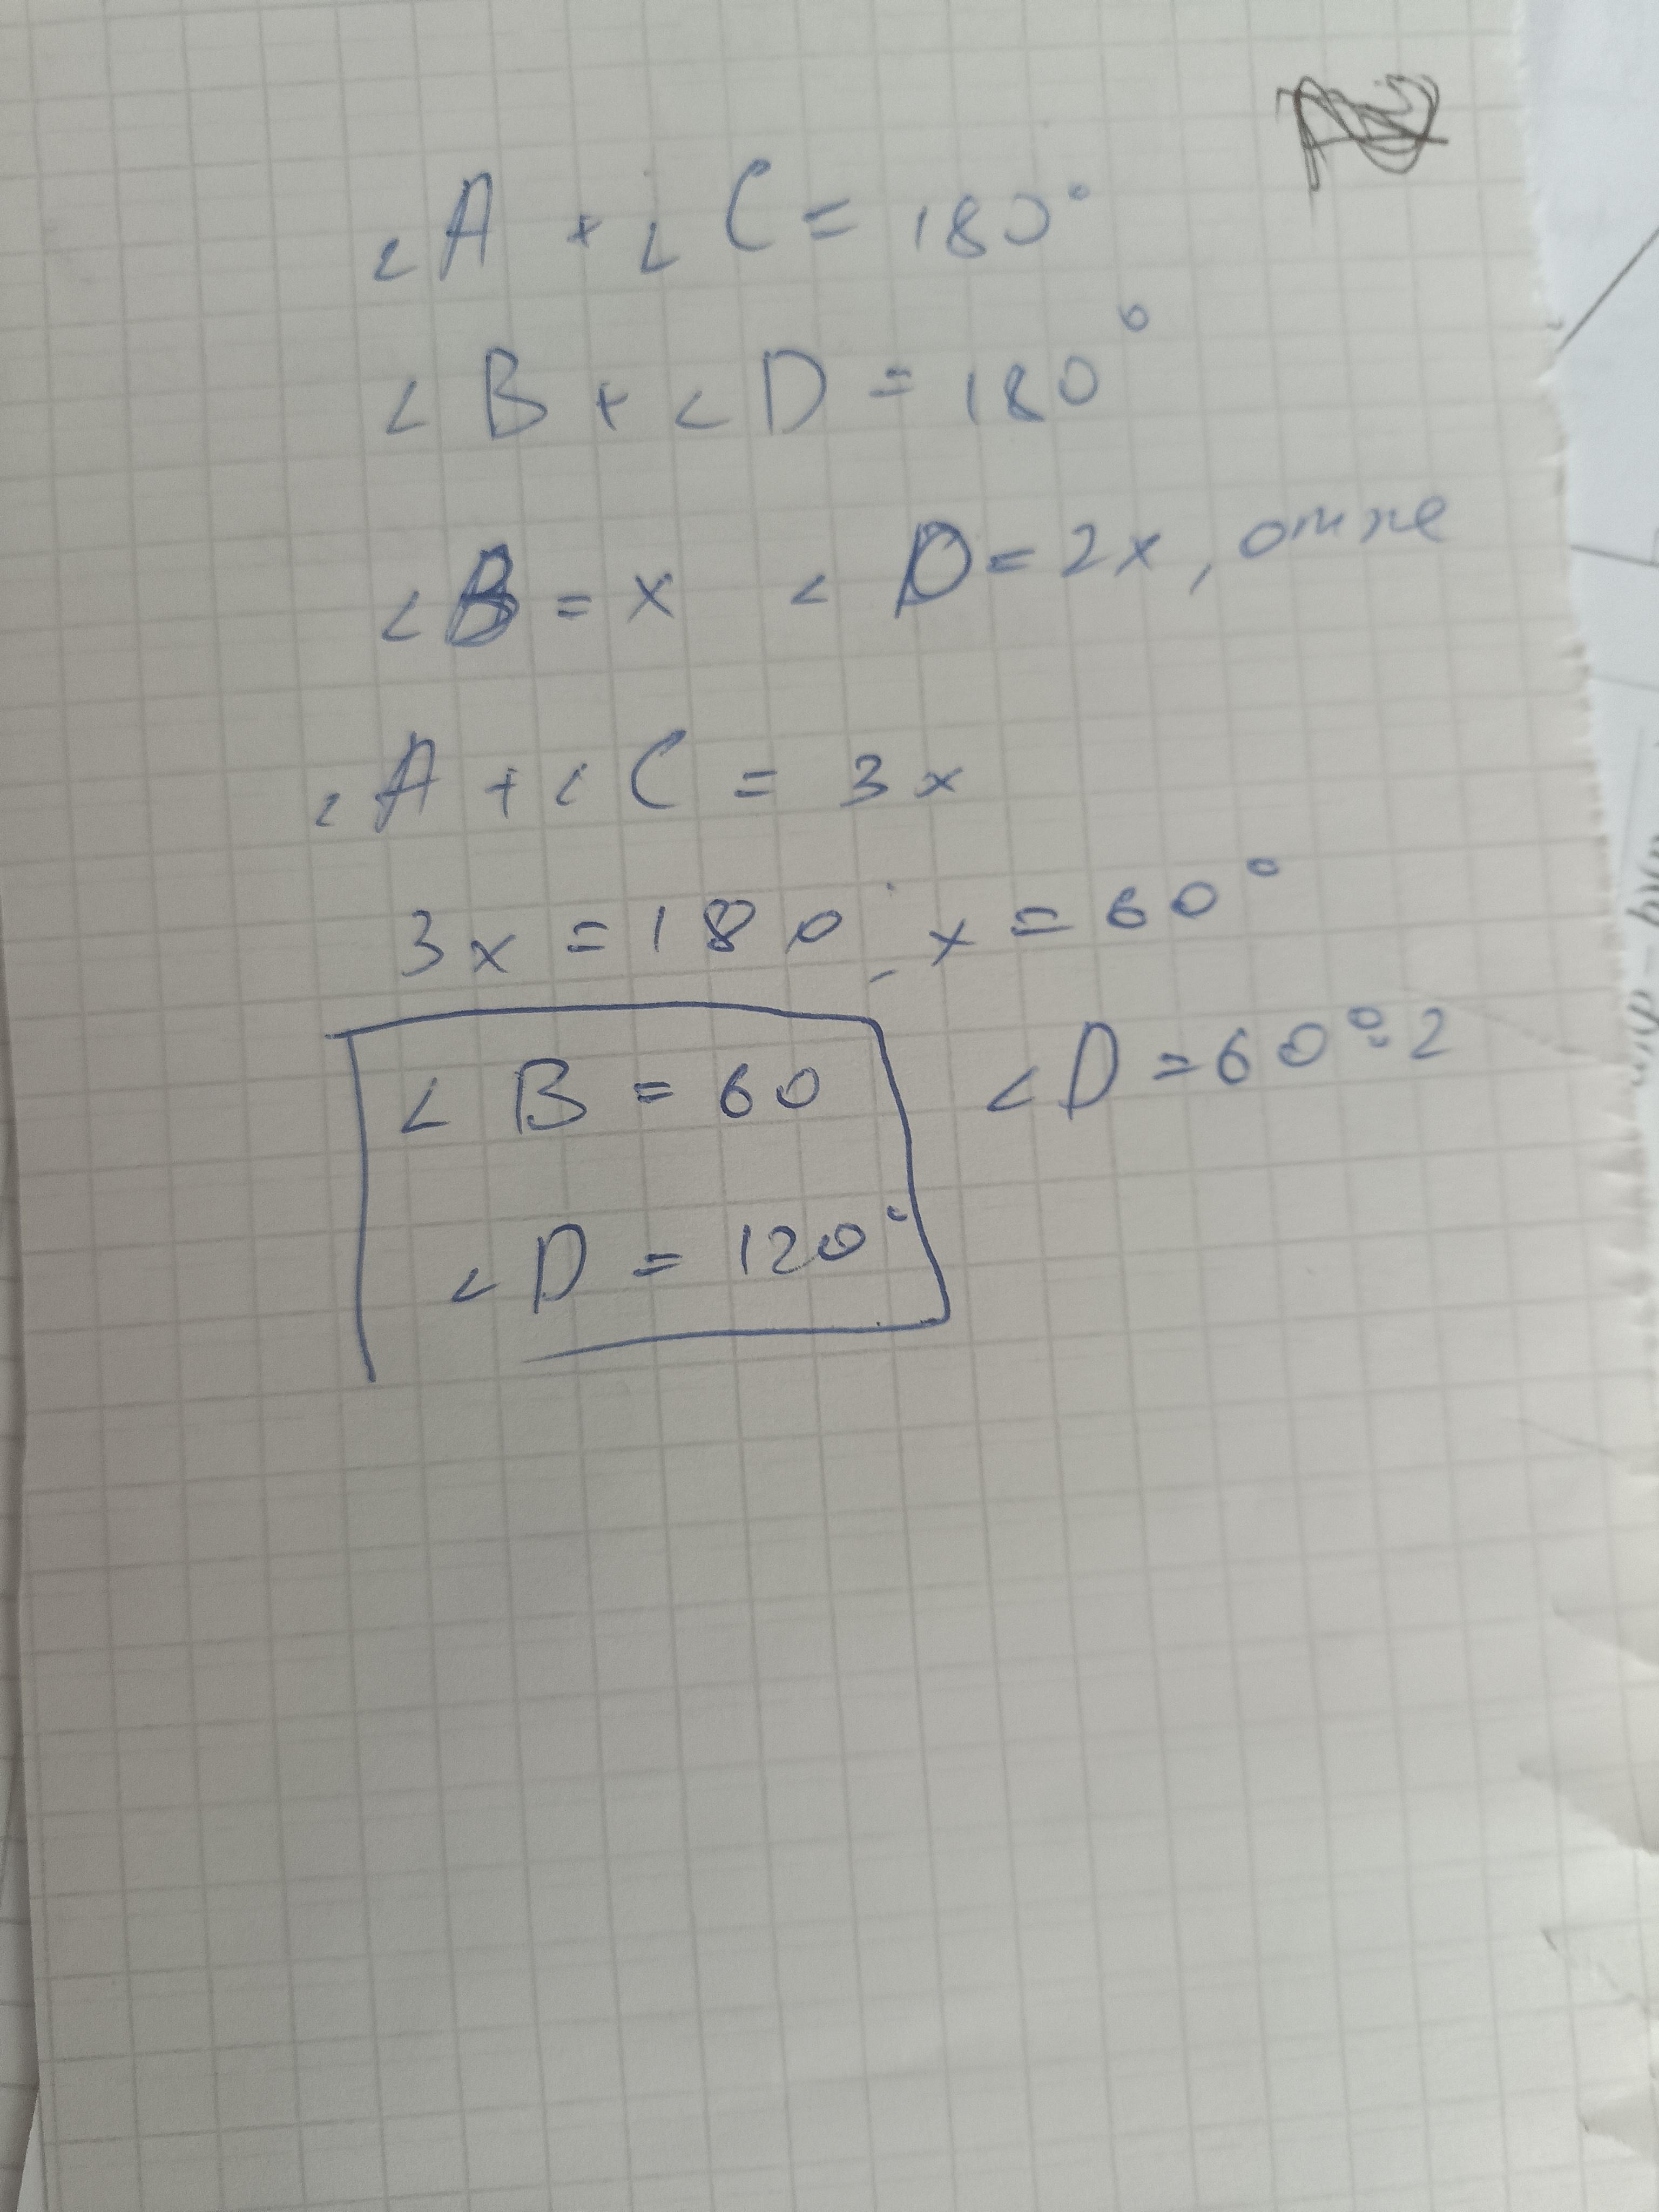 ∠A + ∠C = 180°
∠B + ∠D = 180°
∠B = x ∠D = 2x, отже
∠A + ∠C = 3x
3x = 180°, x = 60°
∠B = 60 ∠D = 60°·2
∠D = 120°